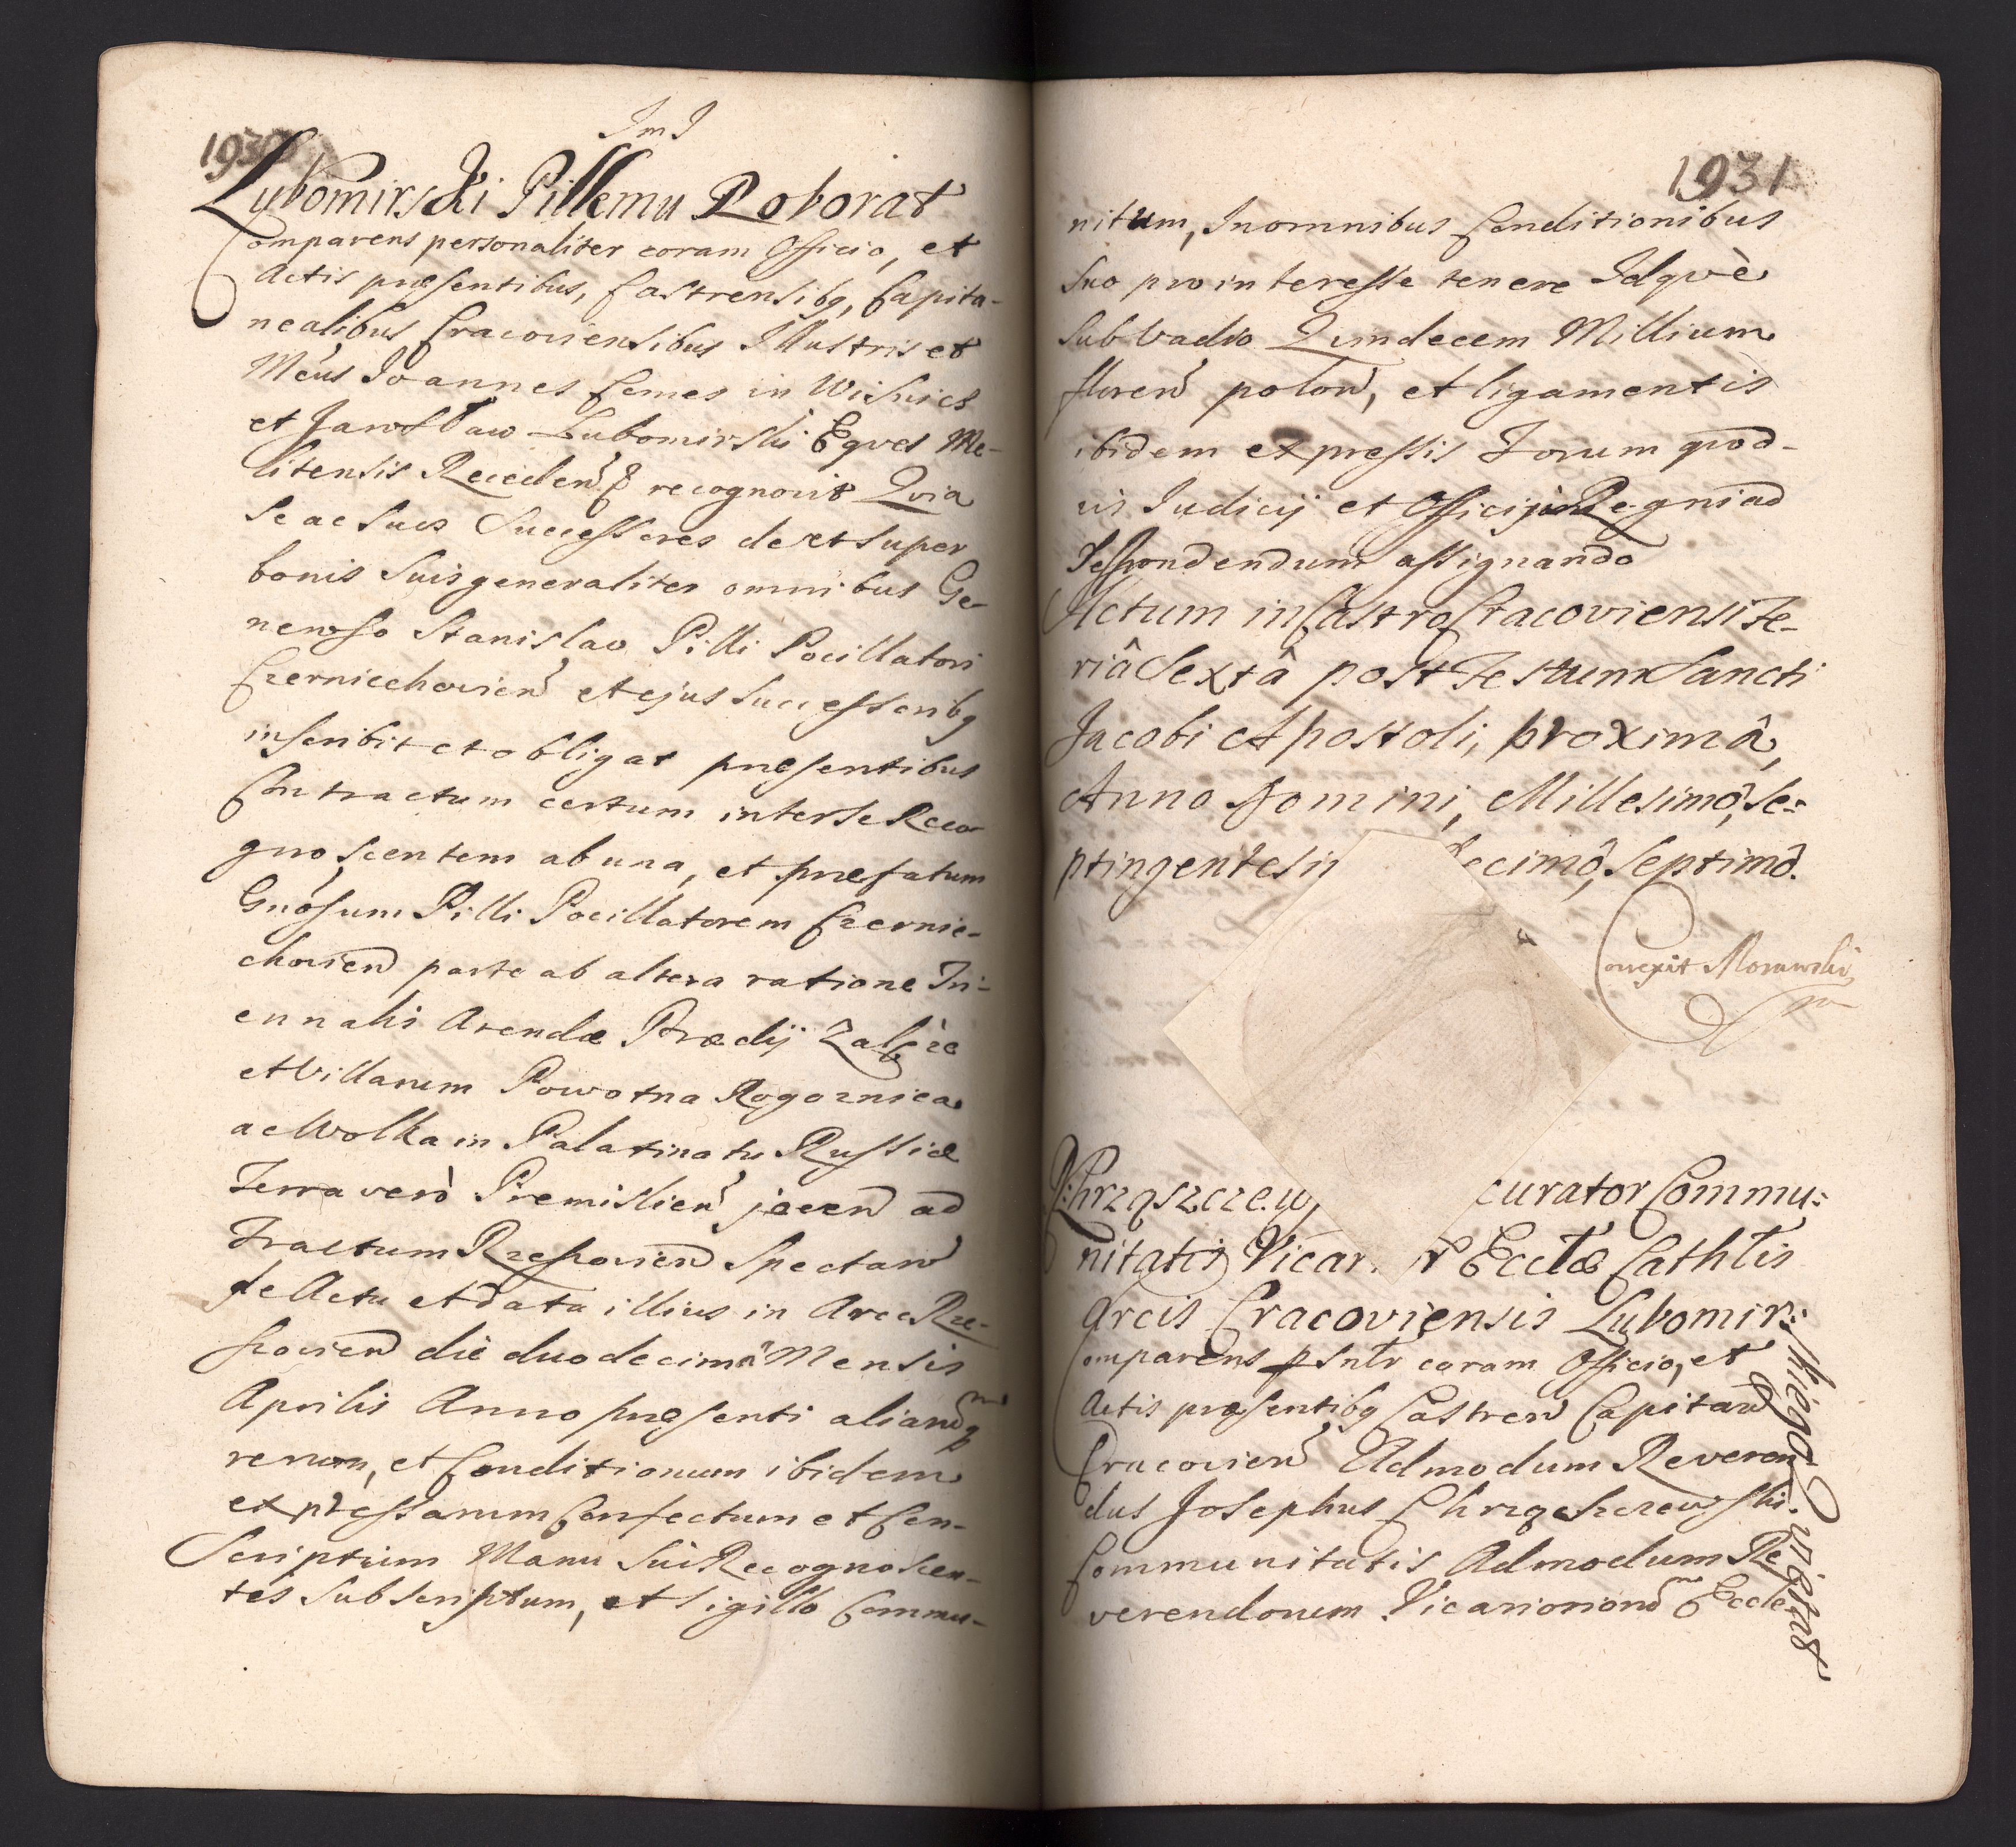 1930
JmJ
Lubomirski Pillemu Roborat
Comparens personaliter coram Officio, et
Actis præsentibus, Castrensibq, Capita-
nealibus Cracoviensibus Illustris et
Mcus Joannes Comes in Wisnicz
et Jarosław Lubomirski Eques Me-
litensis Recedend recognovit Quia
Se ac Suos Successores de et super
bonis Suis generaliter omnibus Ge-
neroso Stanislao Pilli Pocillatori
Czerniechovien et ejus Successoribq
inscribit et obligat præsentibus
Contractum certum inter se Reco-
gnoscentem ab una, et præfatum
Gnosum Pilli Pocillatorem Czernie-
chovien parte ab altera ratione Tri-
ennalis Arendæ Prædij Zalęże
et Villarum Powotna Rogoznica
ac Wolka in Palatinatu Russiæ
Terra vero Premislien jacen ad
Tractum Rzeszovien Spectan
de Actu et data illius in Arce Rze-
szovien die duodecimâ Mensis
Aprilis Anno præsenti aliarumq
rerum, et Conditionum ibidem
expressarum Confectum et Con-
Scriptum Manu Sui Recognoscen-
tes Subscriptum, et Sigillo Commu-
1931
nitum, In omnibus Conditionibus
Suo pro interesse tenere Idquè
Sub Vadio Quindecem Millium
floren polon, et ligamentis
ibidem expressis Forum quod-
vis Judicij et Officij in Regni ad
Respondendum assignando
Actum in Castro Cracoviensi Fe-
riâ Sextâ post Festum Sancti
Jacobi Apostoli, proximâ,
Anno Domini, Millesimô, Se=
ptingentesi ecimô, Septimô.
Correxit Morawski
mp
R: Chrząszczew curator Commu=
nitatis Vicar r Ecclæ Cathlis
Arcis Cracoviensis Lubomir=
skiego Quietat
Comparens psnlr coram Officio, et
Actis præsentibq Castren Capitan
Cracovien Admodum Reveren
dus Josephus Chrząszczewski
Communitatis Admodum Re
verendorum Vicariorum Eccle